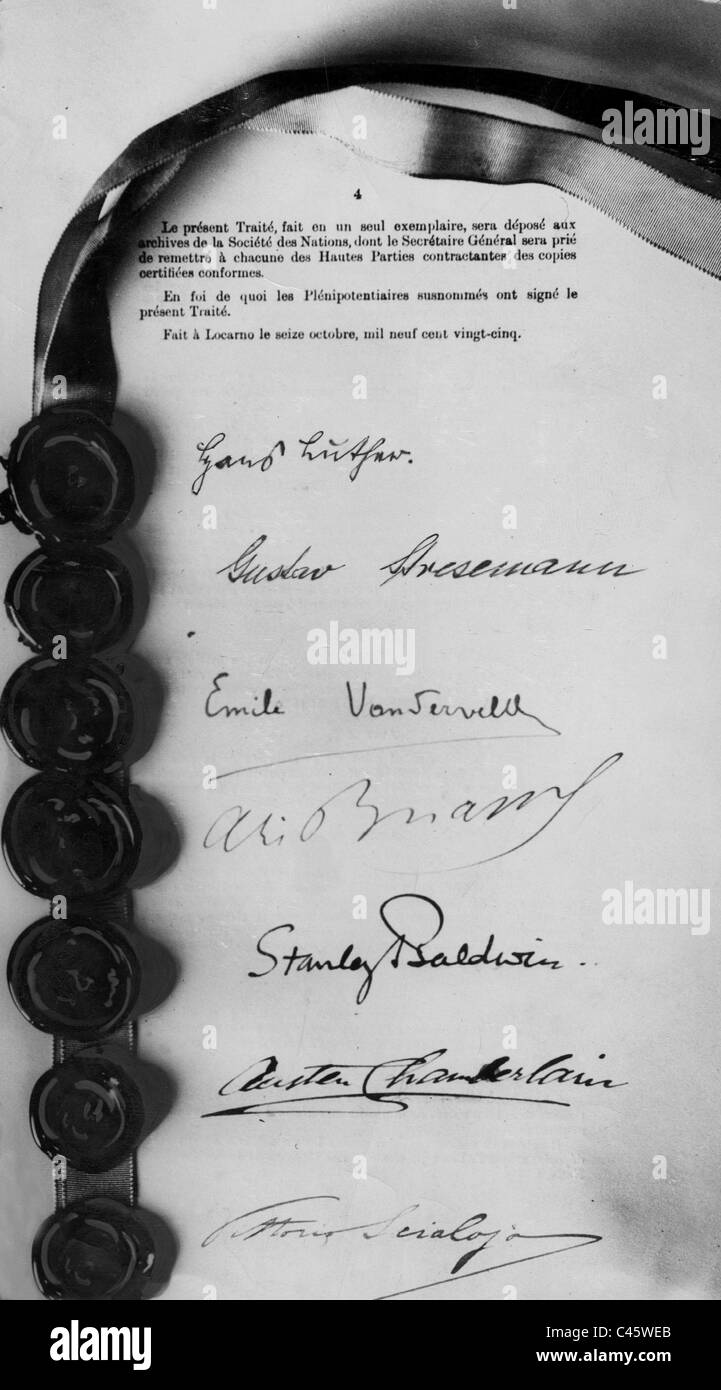 4
Le présent Traité, fait en un seul exemplaire, sera déposé aux
archives de la Société des Nations, dont le Secrétaire Général sera prié
de remettre à chacune des Hautes Parties contractantes des copies
certifiées conformes.
En foi de quoi les Plénipotentiaires susnommés ont signé le
présent Traité.
Fait à Locarno le seize octobre, mil neuf cent vingt-cinq.
Hans Luther.
Gustav Stresemann
Emile Vandervelde
Ari Briand
Stanley Baldwin.
Austen Chamberlain
Vittorio Scialoja
a alamy stock photo
C45WEB
www.alamy.com